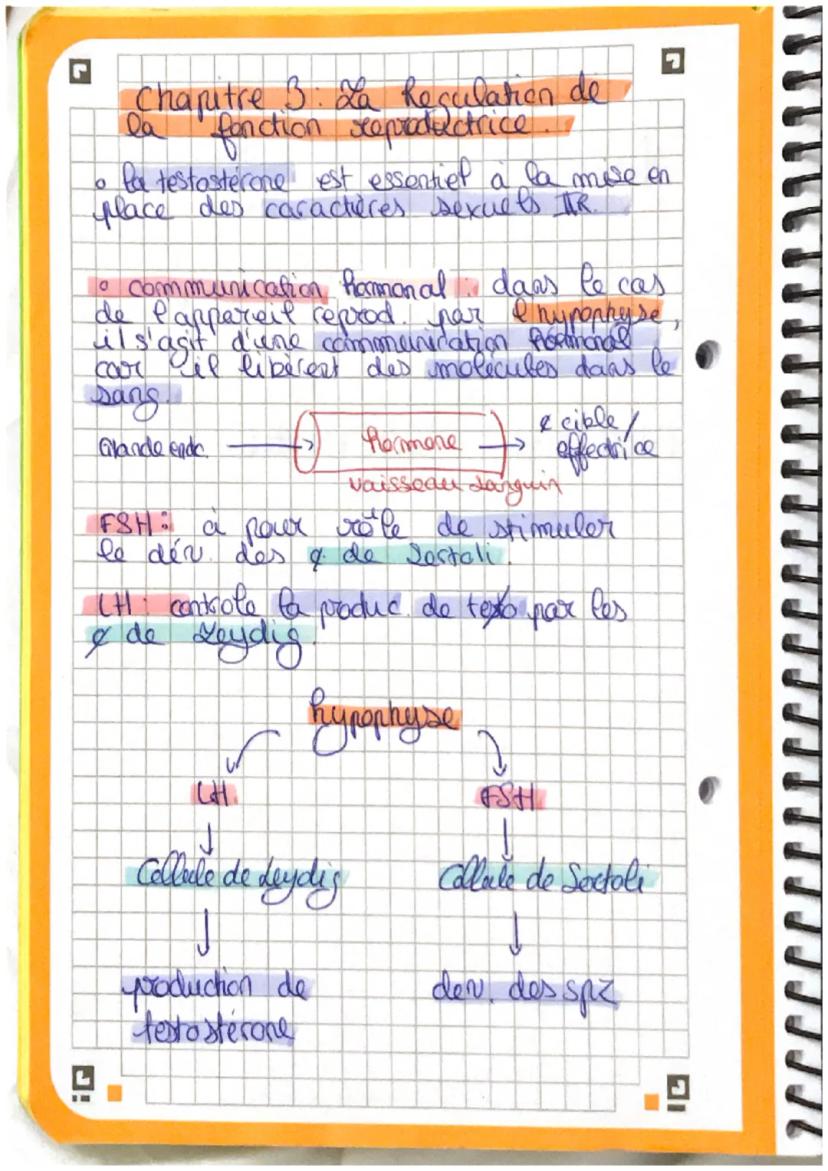 Chapitre 3 : La Regulation de
la fonction reproductrice.
• la testostérone est essentiel à la mise en
place des caractères sexuels IIR.
• communication Hormonal : dans le cas
de l'appareil reprod. par l'hypophyse,
il s'agit d'une communication Hormonal
car il libèrent des molécules dans le
sang.
Glande endc. → Hormone → ¢ cible /
effectrice
vaisseau sanguin
FSH : à pour rôle de stimuler
le dév. des ¢ de Sertoli.
LH : controle la produc. de testo par les
¢ de Leydig.
hypophyse
LH FSH
Cellule de Leydig Cellule de Sertoli
production de dev. des spz
testostérone